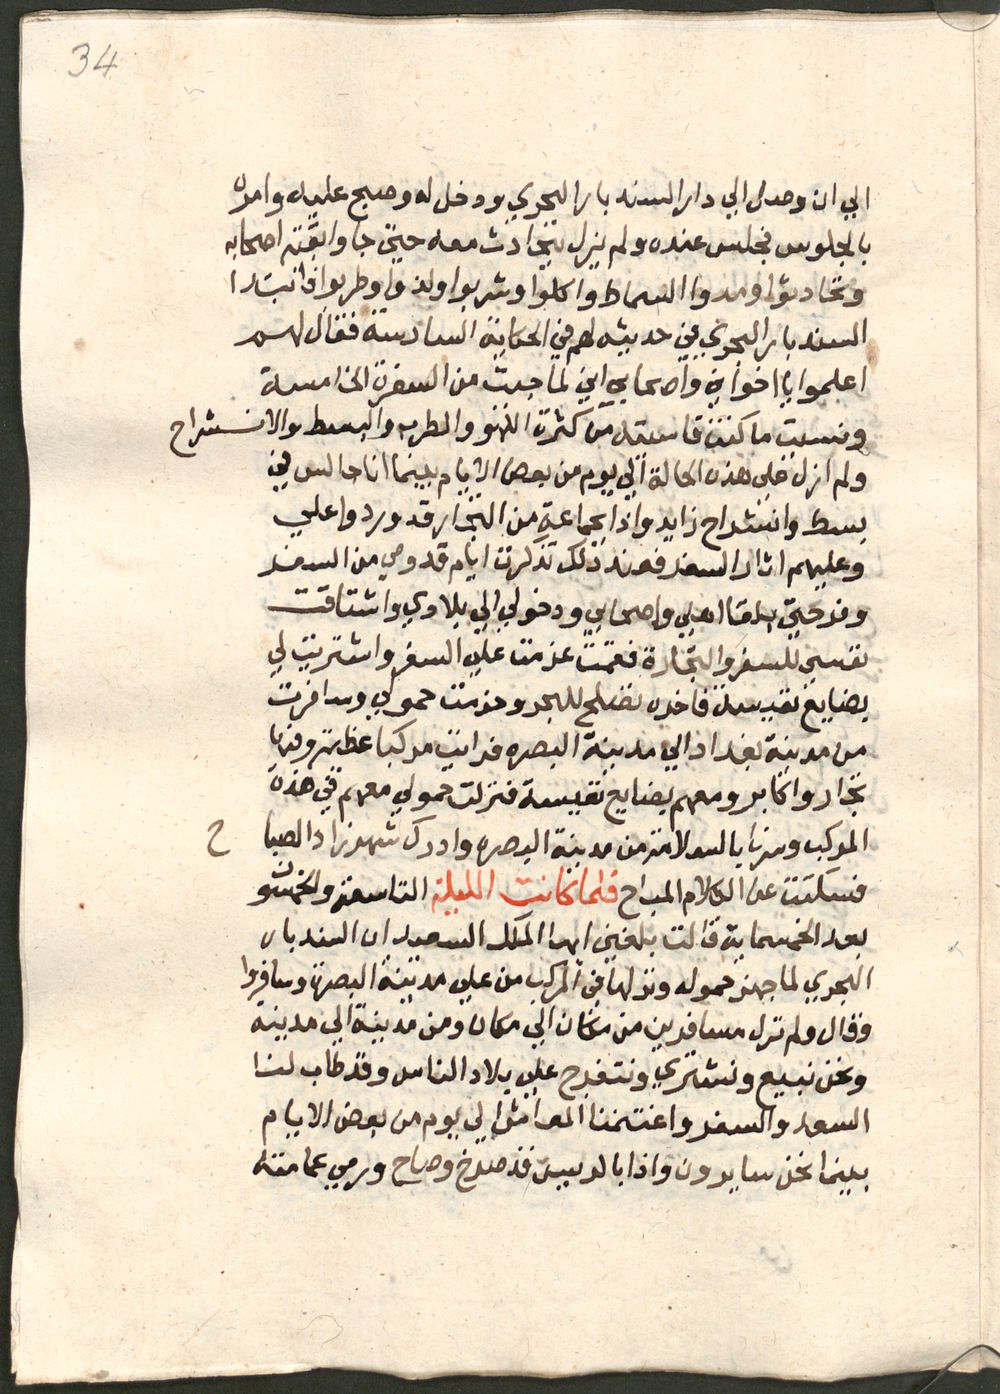 34
الي ان وصل الي دار السندباد البحري ودخل له وصبح عليه وامره
بالجلوس فجلس عنده ولم يزل يتحادث معه حتي جاوا بقيت اصحابه
وتحادثوا ومدوا السماط واكلوا وشربوا ولذوا وطربوا فابتدا
السندباد البحري في حديثه لهم في الحكاية السادسة فقال لهم
اعلموا يا اخواني واصحابي اني لما جيت من السفرة الخامسة
ونسيت ما كنت قاسيته من كثرت اللهو والطرب والبسط والانشراح
ولم ازل علي هذه الحالة الي يوم من بعض الايام بينما انا جالس في
بسط وانشراح زايد واذا بجماعة من التجار قد وردوا علي
وعليهم اثار السفر فعند ذلك تذكرت ايام قدومي من السفر
وفرحتي بلقا اهلي واصحابي ودخولي الي بلادي واشتاقت
نفسي للسفر والتجارة فقمت عزمت علي السفر واشتريت لي
بضايع نفيسة فاخره تصلح للبحر وحزمت حمولي وسافرت
من مدينة بغداد الي مدينة البصره فرايت مركبا عظيم وفيها
تجار واكابر ومعهم بضايع نفيسة فنزلت حمولي معهم في هذه
المركب وسرنا بالسلامة من مدينة البصره وادرك شهرزاد الصبا ح
فسكتت عن الكلام المباح فلما كانت الليلة التاسعة والخمسون
بعد الخمسماية قالت بلغني ايها الملك السعيد ان السندباد
البحري لما جهز حموله ونزلها في المركب من علي مدينة البصرة وسافروا
وقال ولم نزل مسافرين من مكان الي مكان ومن مدينة الي مدينة
ونحن نبيع ونشتري ونتفرج علي بلاد الناس وقد طاب لنا
السعد والسفر واغتنمنا المعاش الي يوم من بعض الايام
بينما نحن سايرون واذا بالرييس قد صرخ وصاح ورمي عمامته